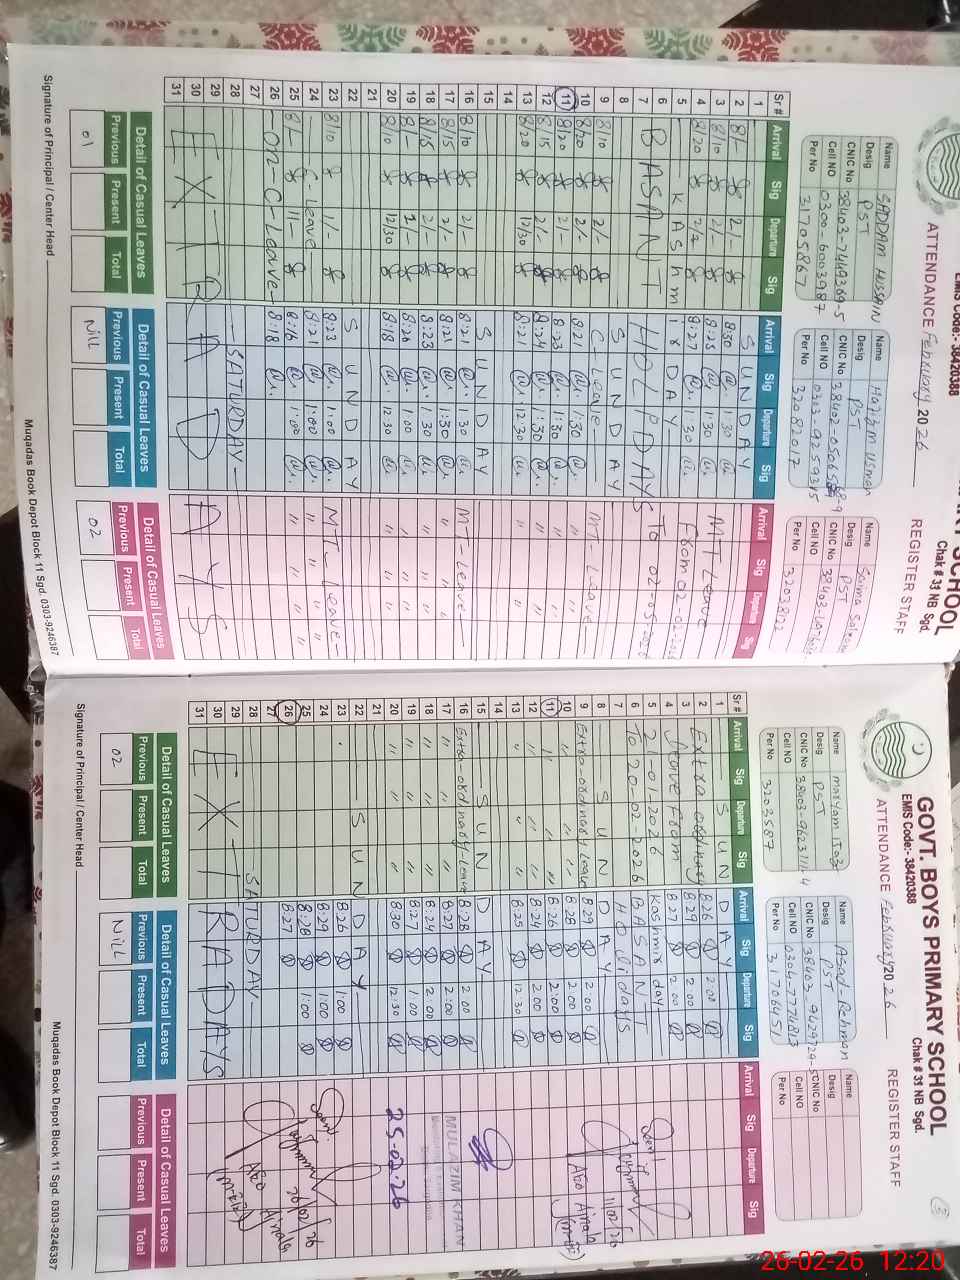 SCHOOL
EMIS Code:- 38420388
Chak # 31 NB Sgd.
ATTENDANCE February 2026
REGISTER STAFF
Name SADDAM HUSSAIN
Desig PST
CNIC No
Cell NO 0300-6003987
Per No 31705867
Name Hazham Usman
Desig PST
CNIC No
Cell NO 0303-9259315
Per No 32082017
Name Saima
Desig PST
CNIC No
Cell NO
Per No
Sr# Arrival Sig Departure Sig Arrival Sig Departure Sig Arrival Sig Departure Sig
1 SUNDAY
2 8/- 2/- 8:30 1:30 MT Leave
3 8/10 2/- 8:25 1:30 From 02-02-2026
4 8/20 8:27 1:30 To 02-05-2026
5 KASHMIR DAY
6 BASANT HOLIDAYS
7
8 SUNDAY
9 8/10 2/- C Leave MT-Leave
10 8/20 2/- 8:21 1:30 "
11 8/20 2/- 8:23 1:30 "
12 8/15 2/- 8:24 1:30 "
13 8/20 12/30 8:21 12:30 "
14
15 SUNDAY
16 8/10 2/- 8:21 1:30 MT-Leave
17 8/15 2/- 8:21 1:30 "
18 8/15 2/- 8:23 1:30 "
19 8/- 8:20 1:00 "
20 8/10 12/30 8:18 12:30 "
21
22 SUNDAY
23 8/10 1/- 8:23 1:00 MT-Leave
24 C-Leave 8:21 1:00 "
25 8/- 11/- 8:16 1:00 "
26 -On-C-Leave- 8:18
27
28 SATURDAY
29 EXTRA DAYS
30
31
Detail of Casual Leaves Detail of Casual Leaves Detail of Casual Leaves
Previous Present Total Previous Present Total Previous Present Total
01 Nill 02
Signature of Principal / Center Head
Muqadas Book Depot Block 11 Sgd. 0303-9246387
GOVT. BOYS PRIMARY SCHOOL
EMIS Code:- 38420388
Chak # 31 NB Sgd.
ATTENDANCE February 2026
REGISTER STAFF
Name Maryam
Desig PST
CNIC No
Cell NO
Per No 3203587
Name Azad Rehman
Desig PST
CNIC No
Cell NO 0304-7774813
Per No 31706451
Name
Desig
CNIC No
Cell NO
Per No
Sr# Arrival Sig Departure Sig Arrival Sig Departure Sig Arrival Sig Departure Sig
1 SUNDAY
2 Extra ordinary 8:26 2:00
3 Leave From 8:29 2:00
4 21-01-2026 8:27 2:00
5 To 20-02-2026 Kashmir day
6 BASANT
7 Holidays
8 SUNDAY
9 Extra-ordinary Leave 8:29 2:00
10 " 8:28 2:00
11 " 8:26 2:00
12 " 8:24 2:00
13 " 8:25 12:30
14
15 SUNDAY
16 Extra-ordinary Leave 8:28 2:00
17 " 8:27 2:00
18 " 8:24 2:00
19 " 8:27 1:00
20 " 8:30 12:30
21
22 SUNDAY
23 8:26 1:00
24 8:29 1:00
25 8:28 1:00
26 8:27
27
28 SATURDAY
29 EXTRA DAYS
30
31
11/02/26
AEO Ajnala
MULAZIM KHAN
25-02-26
20/02/26
AEO Ajnala
Detail of Casual Leaves Detail of Casual Leaves Detail of Casual Leaves
Previous Present Total Previous Present Total Previous Present Total
02 Nill
Signature of Principal / Center Head
Muqadas Book Depot Block 11 Sgd. 0303-9246387
26-02-26 12:20